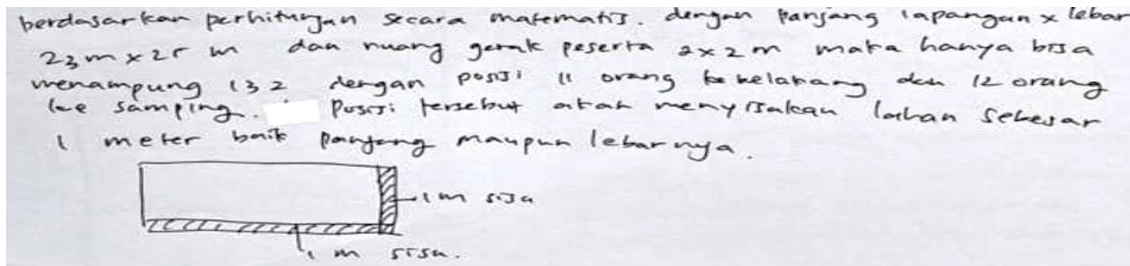 berdasarkan perhitungan secara matematis. dengan panjang lapangan x lebar
23m x 25 m dan ruang gerak peserta 2x2 m maka hanya bisa
menampung 132 dengan posisi 11 orang ke belakang dan 12 orang
ke samping. Posisi tersebut akan menyisakan lahan sebesar
1 meter baik panjang maupun lebarnya.
1 m sisa
1 m sisa.